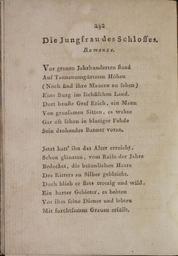 242
Die Jungfrau des Schlosses.
Romanze.
Vor grauen Jahrhunderten stand
Auf Tannenumgürteten Höhen
(Noch sind ihre Mauern zu sehen)
Eine Burg im lieblichen Land.
Dort hauste Graf Erich, ein Mann
Von grausamen Sitten, es wehte
Gar oft schon in blutiger Fehde
Sein drohendes Banner voran.
Jetzt hatt' ihn das Alter erreicht,
Schon glänzten, vom Reife der Jahre
Bedecket, die bräunlichen Haare
Des Ritters zu Silber gebleicht.
Doch blieb er stets trotzig und wild,
Ein harter Gebieter, es bebten
Vor ihm seine Diener und lebten
Mit furchtsamem Grauen erfüllt.